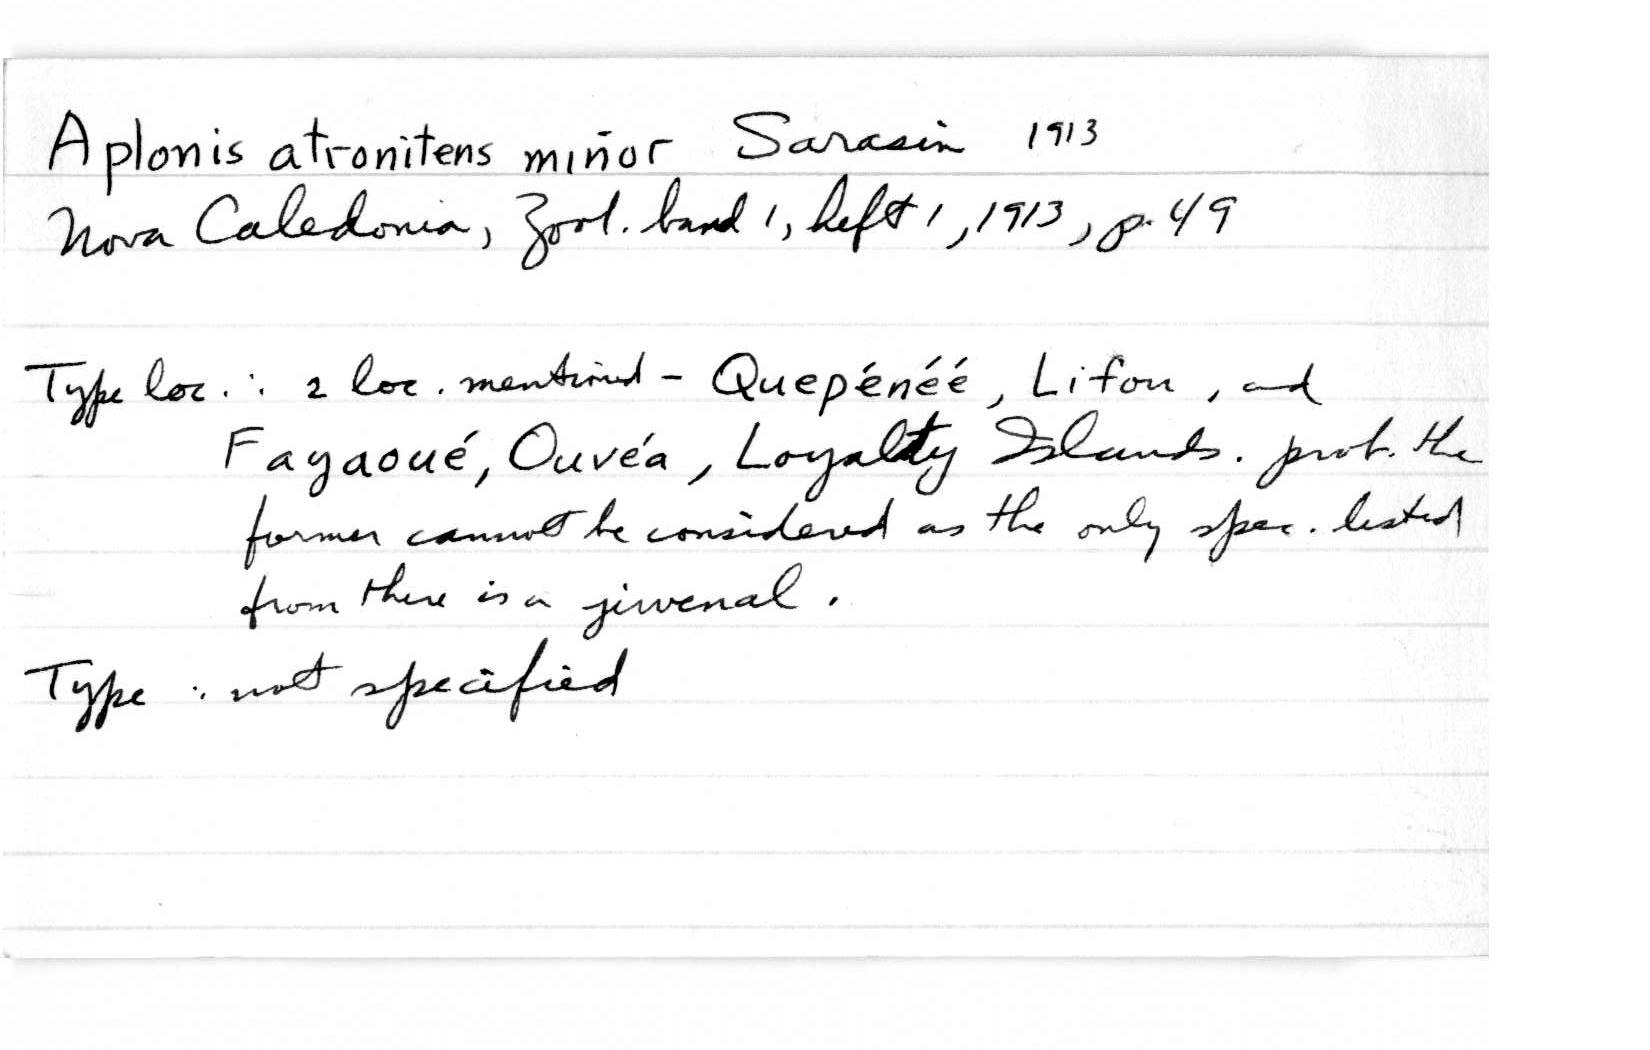 Aplonis atronitens minor Sarasin 1913
Nova Caledonia, Zool. band 1, heft 1, 1913, p. 49
Type loc.: 2 loc. mentioned - Quepénéé, Lifou, and
Fayaoué, Ouvéa, Loyalty Islands. prob. the
former cannot be considered as the only spec. listed
from there is a juvenal.
Type : not specified